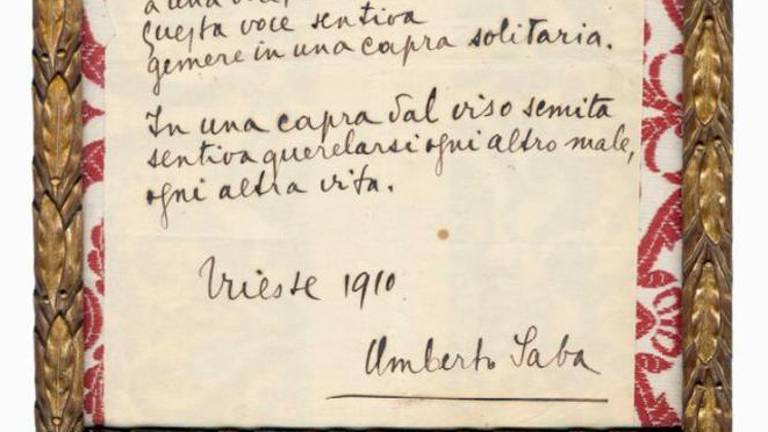 a una
Questa voce sentiva
gemere in una capra solitaria.
In una capra dal viso semita
sentiva querelarsi ogni altro male,
ogni altra vita.
Trieste 1910
Umberto Saba